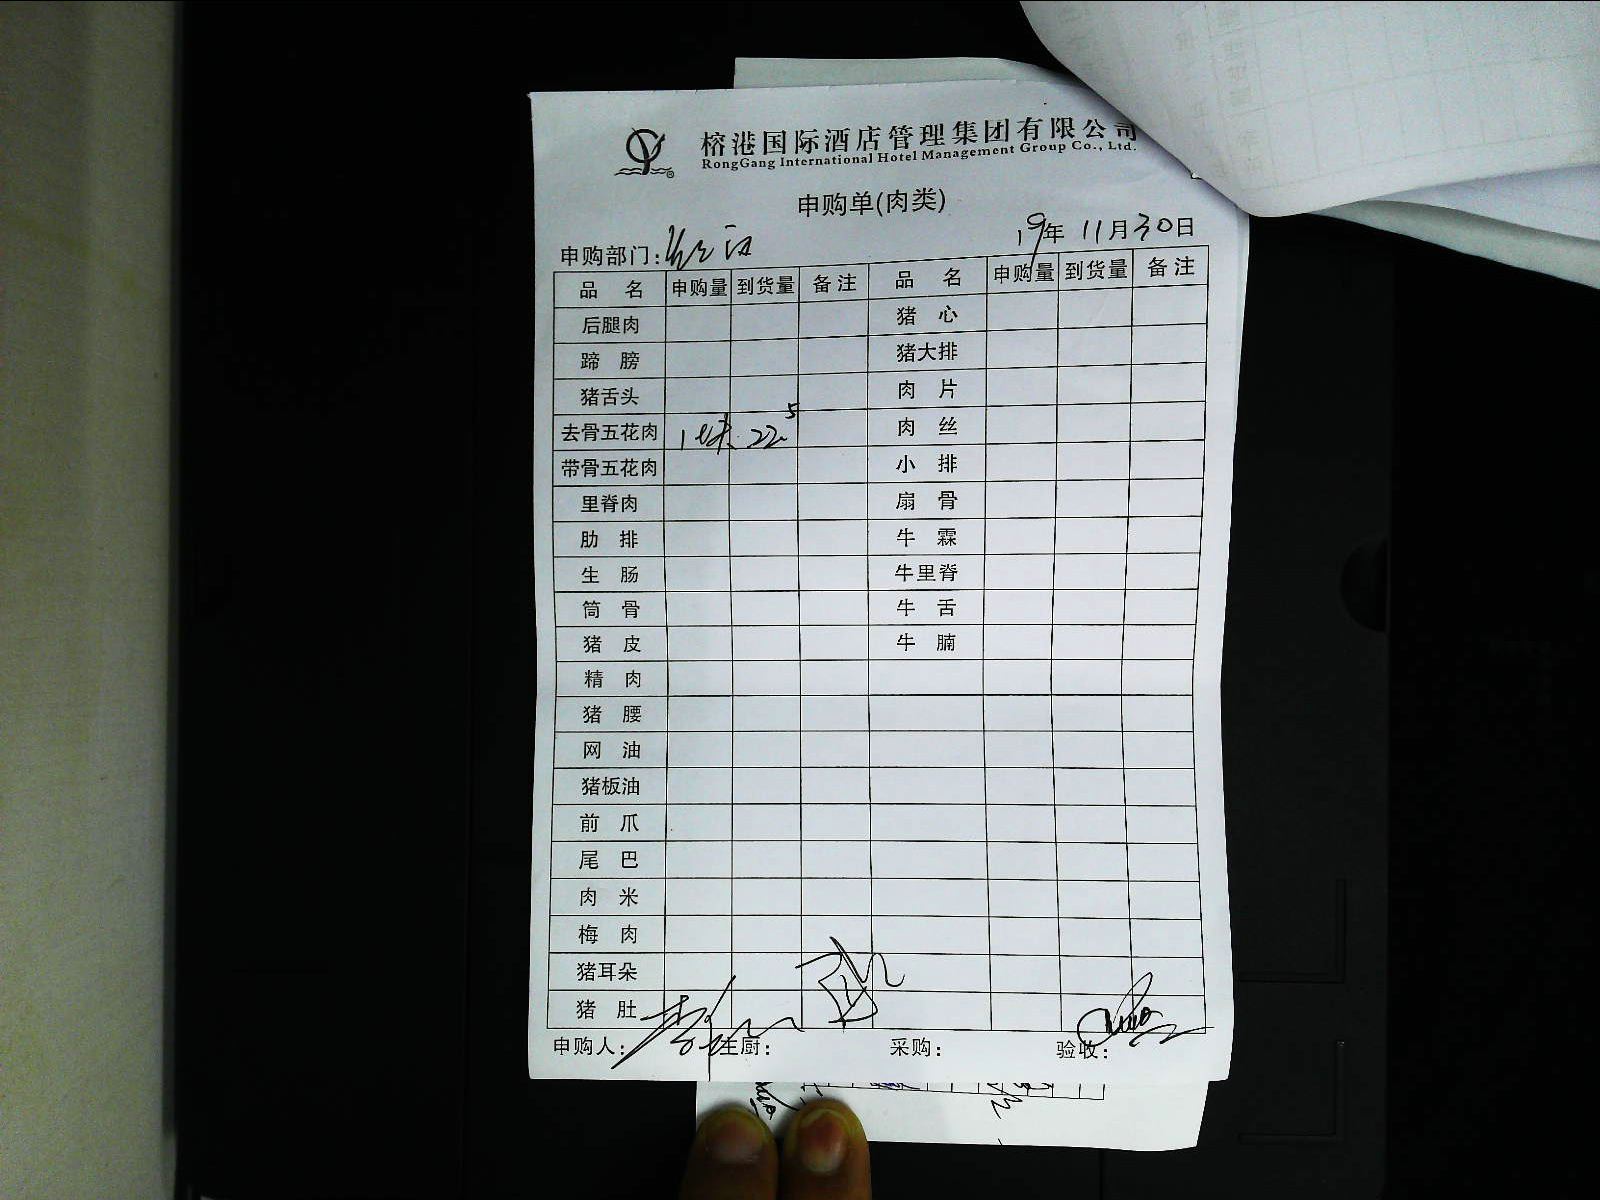 榕港国际酒店管理集团有限公司
RongGang International Hotel Management Group Co., Ltd.
申购单(肉类)
申购部门: 19年 11月30日
品 名 申购量 到货量 备注 品 名 申购量 到货量 备注
后腿肉 猪 心
蹄 膀 猪大排
猪舌头 肉 片
去骨五花肉 1块 22.5 肉 丝
带骨五花肉 小 排
里脊肉 扇 骨
肋 排 牛 霖
生 肠 牛里脊
筒 骨 牛 舌
猪 皮 牛 腩
精 肉
猪 腰
网 油
猪板油
前 爪
尾 巴
肉 米
梅 肉
猪耳朵
猪 肚
申购人: 主厨: 采购: 验收: